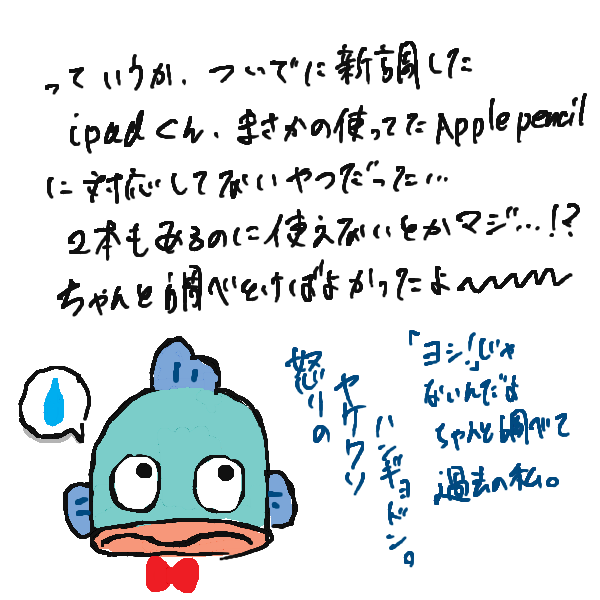 っていうか、ついでに新調した
ipadくん、まさかの使ってたApple pencil
に対応してないやつだった…
2本もあるのに使えないとかマジ…!?
ちゃんと調べとけばよかったよ〜〜〜
怒りの
ヤケクソ
ハンギョドン。
「ヨシ!」じゃ
ないんだよ
ちゃんと調べて
過去の私。